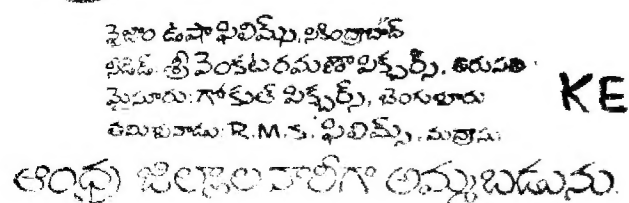 నైజాం ఉషా ఫిలిమ్స్, సికింద్రాబాద్
సీడెడ్. శ్రీ వెంకటరమణా పిక్చర్స్, తిరుపతి.
మైసూరు: గోకుల్ పిక్చర్స్, బెంగుళూరు
తమిళనాడు: R.M.S. ఫిలిమ్స్, మద్రాసు.
KE
ఆంధ్ర జిల్లాలవారీగా అమ్మబడును.